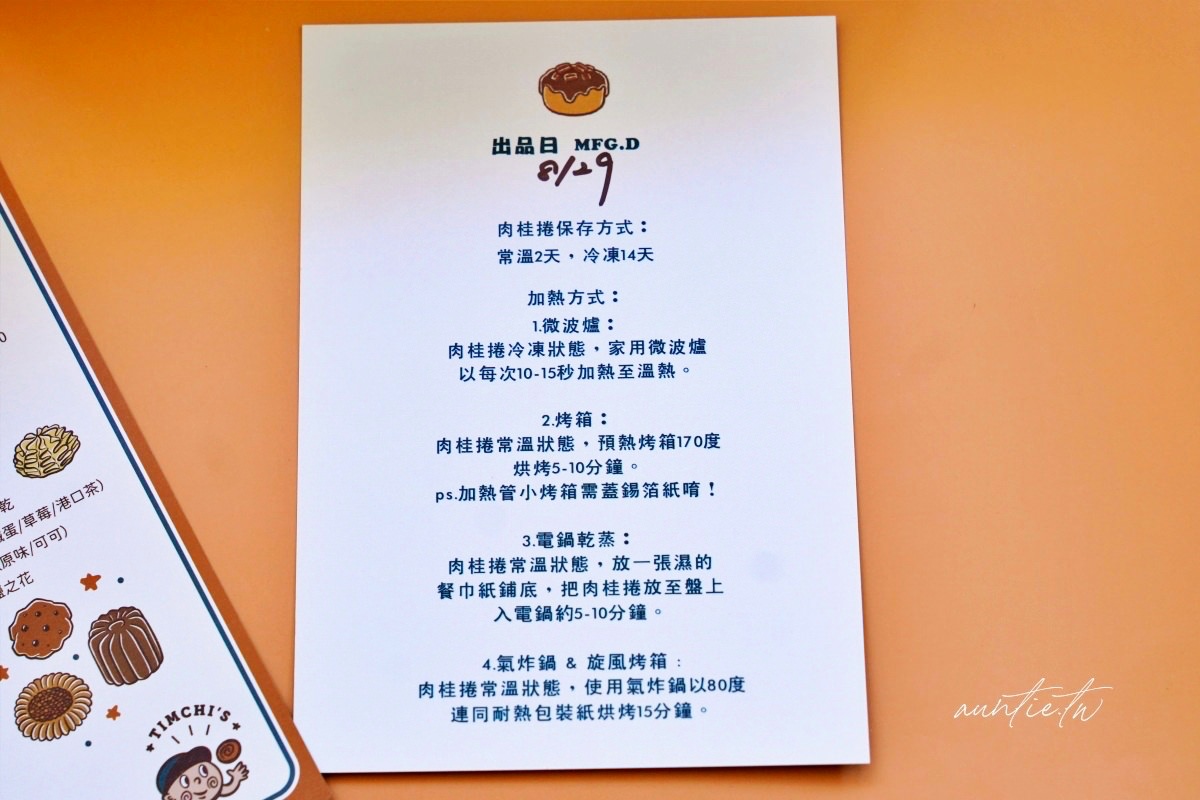 出品日 MFG.D
8/29
肉桂捲保存方式：
常溫2天，冷凍14天
加熱方式：
1.微波爐：
肉桂捲冷凍狀態，家用微波爐
以每次10-15秒加熱至溫熱。
2.烤箱：
肉桂捲常溫狀態，預熱烤箱170度
烘烤5-10分鐘。
ps.加熱管小烤箱需蓋錫箔紙唷！
3.電鍋乾蒸：
肉桂捲常溫狀態，放一張濕的
餐巾紙鋪底，把肉桂捲放至盤上
入電鍋約5-10分鐘。
4.氣炸鍋 & 旋風烤箱：
肉桂捲常溫狀態，使用氣炸鍋以80度
連同耐熱包裝紙烘烤15分鐘。
乾
蛋/草莓/港口茶)
原味/可可)
之花
TIMCHI'S
auntie.tw